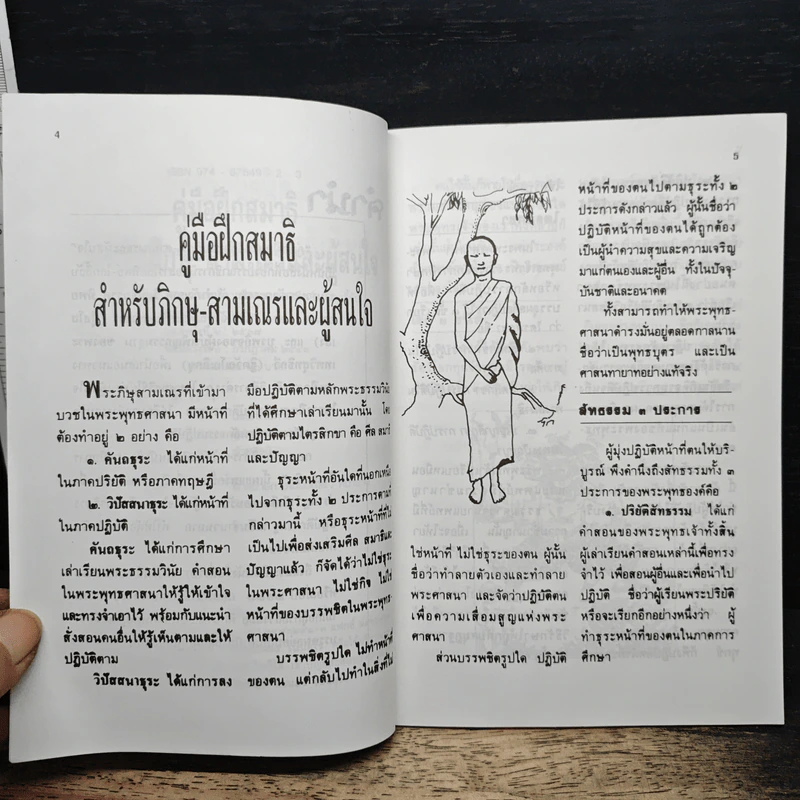 4
คู่มือฝึกสมาธิ
สำหรับภิกษุ-สามเณรและผู้สนใจ
พระภิษุสามเณรที่เข้ามา
บวชในพระพุทธศาสนา มีหน้าที่
ต้องทำอยู่ ๒ อย่าง คือ
๑. คันถธุระ ได้แก่หน้าที่
ในภาคปริยัติ หรือภาคทฤษฎี
๒. วิปัสสนาธุระ ได้แก่หน้าที่
ในภาคปฏิบัติ
คันถธุระ ได้แก่การศึกษา
เล่าเรียนพระธรรมวินัย คำสอน
ในพระพุทธศาสนาให้รู้ให้เข้าใจ
และทรงจำเอาไว้ พร้อมกับแนะนำ
สั่งสอนคนอื่นให้รู้เห็นตามและให้
ปฏิบัติตาม
วิปัสสนาธุระ ได้แก่การลง
มือปฏิบัติตามหลักพระธรรมวินัย
ที่ได้ศึกษาเล่าเรียนมานั้น โดย
ปฏิบัติตามไตรสิกขา คือ ศีล สมาธิ
และปัญญา
ธุระหน้าที่อันใดที่นอกเหนือ
ไปจากธุระทั้ง ๒ ประการตามที่
กล่าวมานี้ หรือธุระหน้าที่ที่ไม่
เป็นไปเพื่อส่งเสริมศีล สมาธิและ
ปัญญาแล้ว ก็จัดได้ว่าไม่ใช่ธุระ
ในพระศาสนา ไม่ใช่กิจ ไม่ใช่
หน้าที่ของบรรพชิตในพระพุทธ-
ศาสนา
บรรพชิตรูปใด ไม่ทำหน้าที่
ของตน แต่กลับไปทำในสิ่งที่ไม่
5
ใช่หน้าที่ ไม่ใช่ธุระของตน ผู้นั้น
ชื่อว่าทำลายตัวเองและทำลาย
พระศาสนา และจัดว่าปฏิบัติตน
เพื่อความเสื่อมสูญแห่งพระ
ศาสนา
ส่วนบรรพชิตรูปใด ปฏิบัติ
หน้าที่ของตนไปตามธุระทั้ง ๒
ประการดังกล่าวแล้ว ผู้นั้นชื่อว่า
ปฏิบัติหน้าที่ของตนได้ถูกต้อง
เป็นผู้นำความสุขและความเจริญ
มาแก่ตนเองและผู้อื่น ทั้งในปัจจุ-
บันชาติและอนาคต
ทั้งสามารถทำให้พระพุทธ-
ศาสนาดำรงมั่นอยู่ตลอดกาลนาน
ชื่อว่าเป็นพุทธบุตร และเป็น
ศาสนทายาทอย่างแท้จริง
สัทธรรม ๓ ประการ
ผู้มุ่งปฏิบัติหน้าที่ตนให้บริ-
บูรณ์ พึงคำนึงถึงสัทธรรมทั้ง ๓
ประการของพระพุทธองค์คือ
๑. ปริยัติสัทธรรม ได้แก่
คำสอนของพระพุทธเจ้าทั้งสิ้น
ผู้เล่าเรียนคำสอนเหล่านี้เพื่อทรง
จำไว้ เพื่อสอนผู้อื่นและเพื่อนำไป
ปฏิบัติ ชื่อว่าผู้เรียนพระปริยัติ
หรือจะเรียกอีกอย่างหนึ่งว่า ผู้
ทำธุระหน้าที่ของตนในภาคการ
ศึกษา